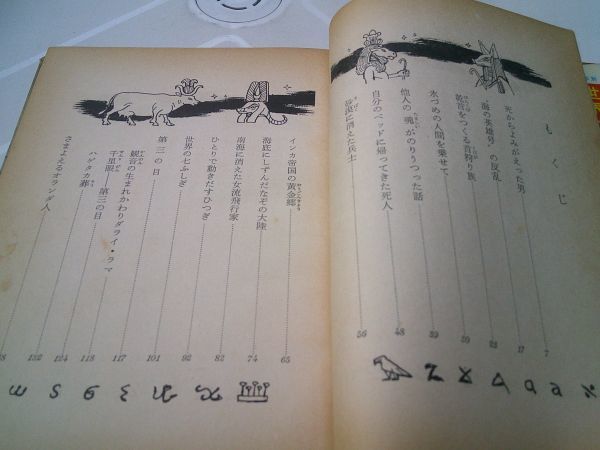 もくじ
死からよみがえった男 7
「海の英雄号」の反乱 17
首をつくる首狩り族 21
氷づめの人間を乗せて 29
他人の「魂」がのりうつった話 39
自分のベッドに帰ってきた死人 48
砂漠に消えた兵士 56
インカ帝国の黄金郷 65
海底にしずんだなぞの大陸 74
南海に消えた女流飛行家 82
ひとりで動きだすひつぎ 92
世界の七ふしぎ 101
第三の目 117
観音の生まれかわりダライ・ラマ 118
千里眼——第三の目 124
ハゲタカ葬 132
さまよえるオランダ人